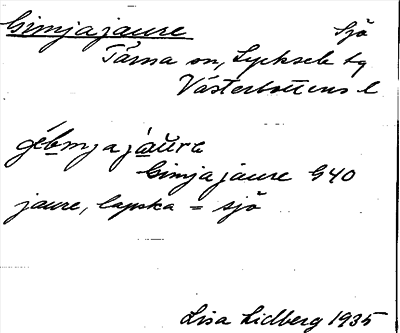 Gimjajaure Sjö
Tärna sn, Lycksele tg
Västerbottens l
gébmjajáŭrɛ
Gimjajaure G40
jaure, lapska = sjö
Lisa Lidberg 1935